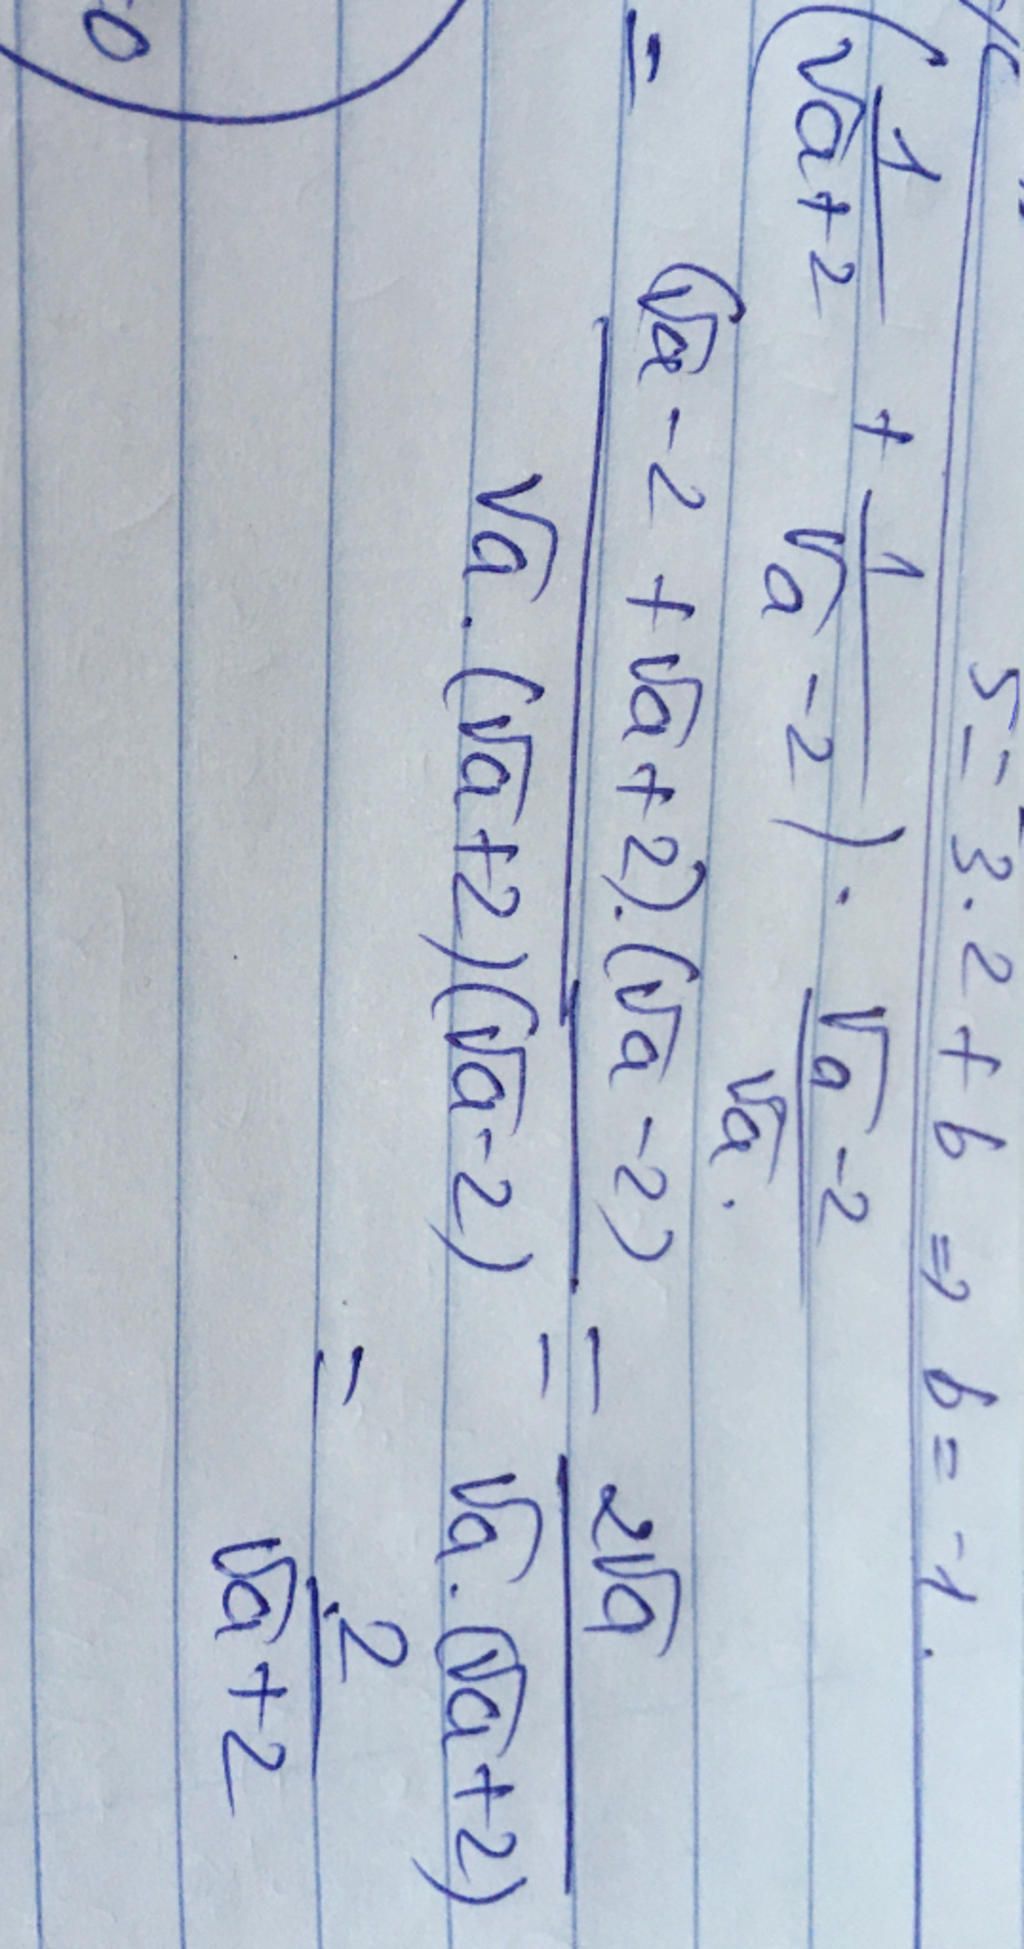 5 = 3.2 + b => b = -1.
(1/(√a+2) + 1/(√a-2)) . (√a-2)/√a.
= ((√a-2+√a+2).(√a-2))/(√a.(√a+2)(√a-2)) = 2√a/(√a.(√a+2))
= 2/(√a+2)